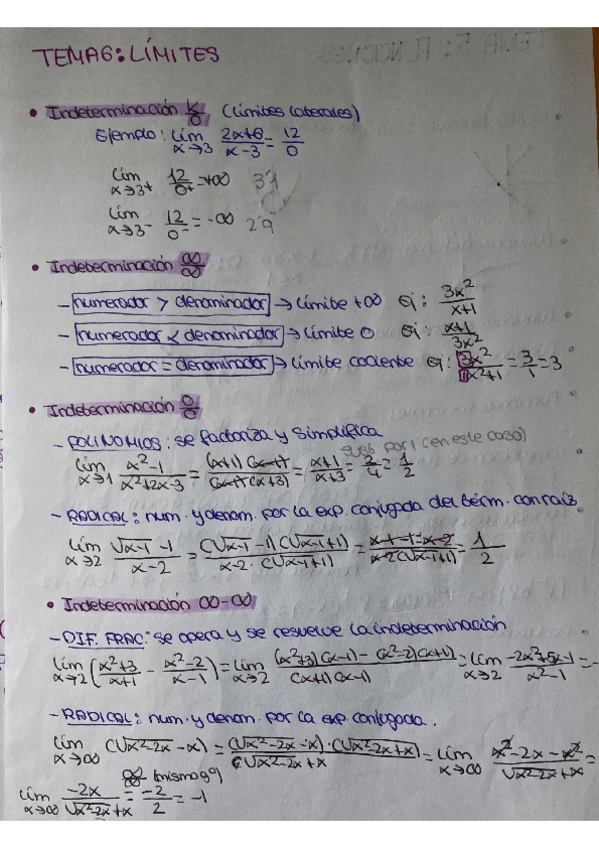 TEMA 6: LÍMITES
• Indeterminación k/0 (Límites laterales)
Ejemplo: lím x→3 2x+6/x-3 = 12/0
lím x→3+ 12/0+ = +∞ 3'1
lím x→3- 12/0- = -∞ 2'9
• Indeterminación ∞/∞
- numerador > denominador → Límite +∞ Ej: 3x²/x+1
- numerador < denominador → Límite 0 Ej: x+1/3x²
- numerador = denominador → Límite cociente Ej: 3x²/1x²+1 = 3/1 = 3
• Indeterminación 0/0
- POLINOMIOS: se factoriza y simplifica
sust por 1 (en este caso)
lím x→1 x²-1/x²+2x-3 = (x+1)(x-1)/(x-1)(x+3) = x+1/x+3 = 2/4 = 1/2
- RADICAL: num. y denom. por la exp. conjugada del térm. con raíz
lím x→2 √x-1 -1/x-2 = (√x-1 -1)(√x-1+1)/x-2·(√x-1+1) = x-1-1=x-2/x-2(√x-1+1) = 1/2
• Indeterminación ∞-∞
- DIF. FRAC: se opera y se resuelve la indeterminación
lím x→2 (x²+3/x+1 - x²-2/x-1) = lím x→2 (x²+3)(x-1)-(x²-2)(x+1)/(x+1)(x-1) = lím x→2 -2x²+5x-1/x²-1 = -
- RADICAL: num. y denom. por la exp. conjugada.
lím x→∞ (√x²-2x -x) = (√x²-2x -x)·(√x²-2x+x)/(√x²-2x+x = lím x→∞ x²-2x-x²/√x²-2x+x =
∞/∞ (mismo gº)
lím x→∞ -2x/√x²-2x+x = -2/2 = -1